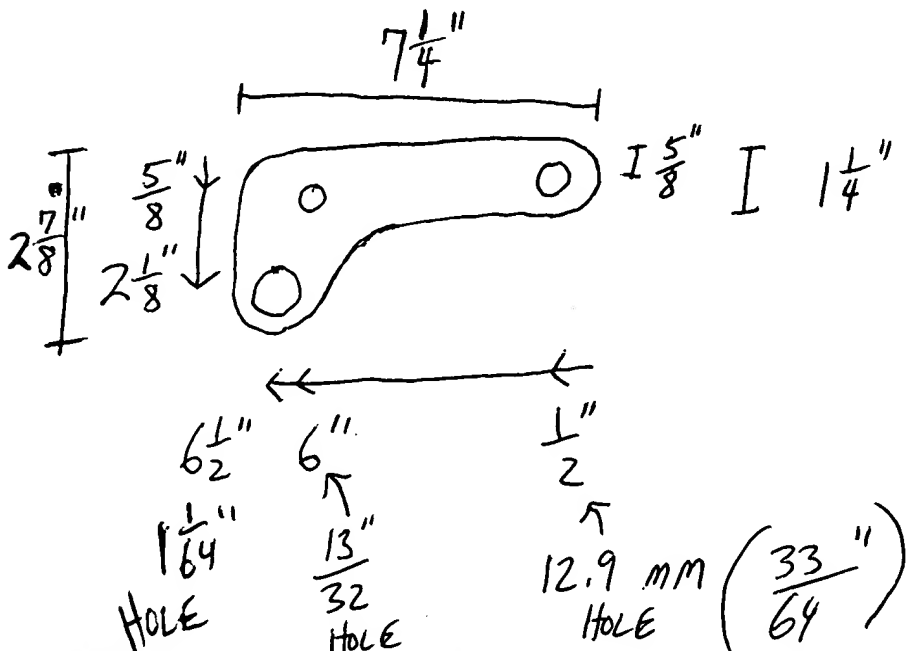 7 1/4"
5/8"
2 7/8"
2 1/8"
5/8"
1 1/4"
6 1/2"
6"
1/2"
1 1/64"
HOLE
13"/32
HOLE
12.9 mm
HOLE
(33"/64)